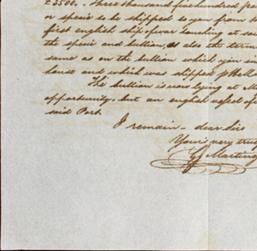 23500. - Three thousand five hundred
or specie to be shipped to you from
first english ship of war landing at
the specie and bullion, as also the term
same as on the bullion which you in
house and which was shipped p
The bullion is now lying at
opportunity. but an english
said Port.
I remain - dear Sir
Your's very tru